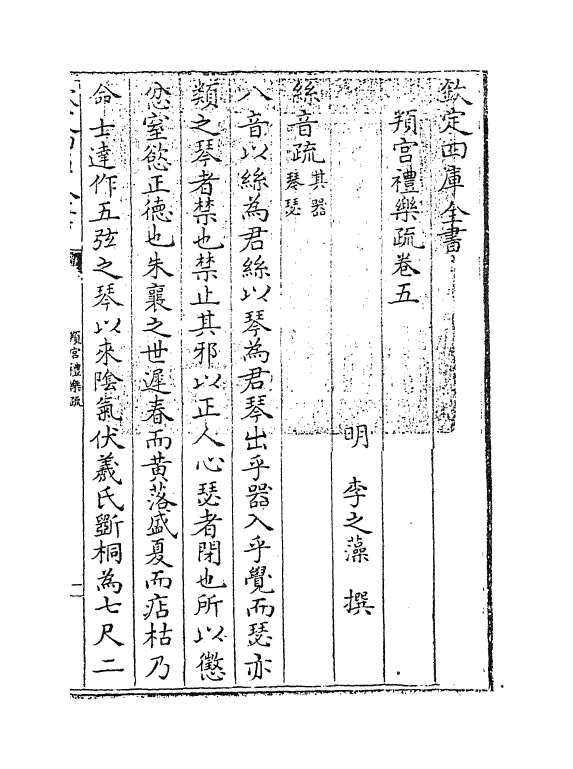 欽定四庫全書
頖宮禮樂疏卷五
明 李之藻 撰
絲音疏其器琴瑟
八音以絲為君絲以琴為君琴出乎器入乎覺而瑟亦
類之琴者禁也禁止其邪以正人心瑟者閉也所以懲
忿窒慾正德也朱襄之世遲春而黃落盛夏而痁枯乃
命士達作五弦之琴以來陰氣伏羲氏斵桐為七尺二
頖宮禮樂疏